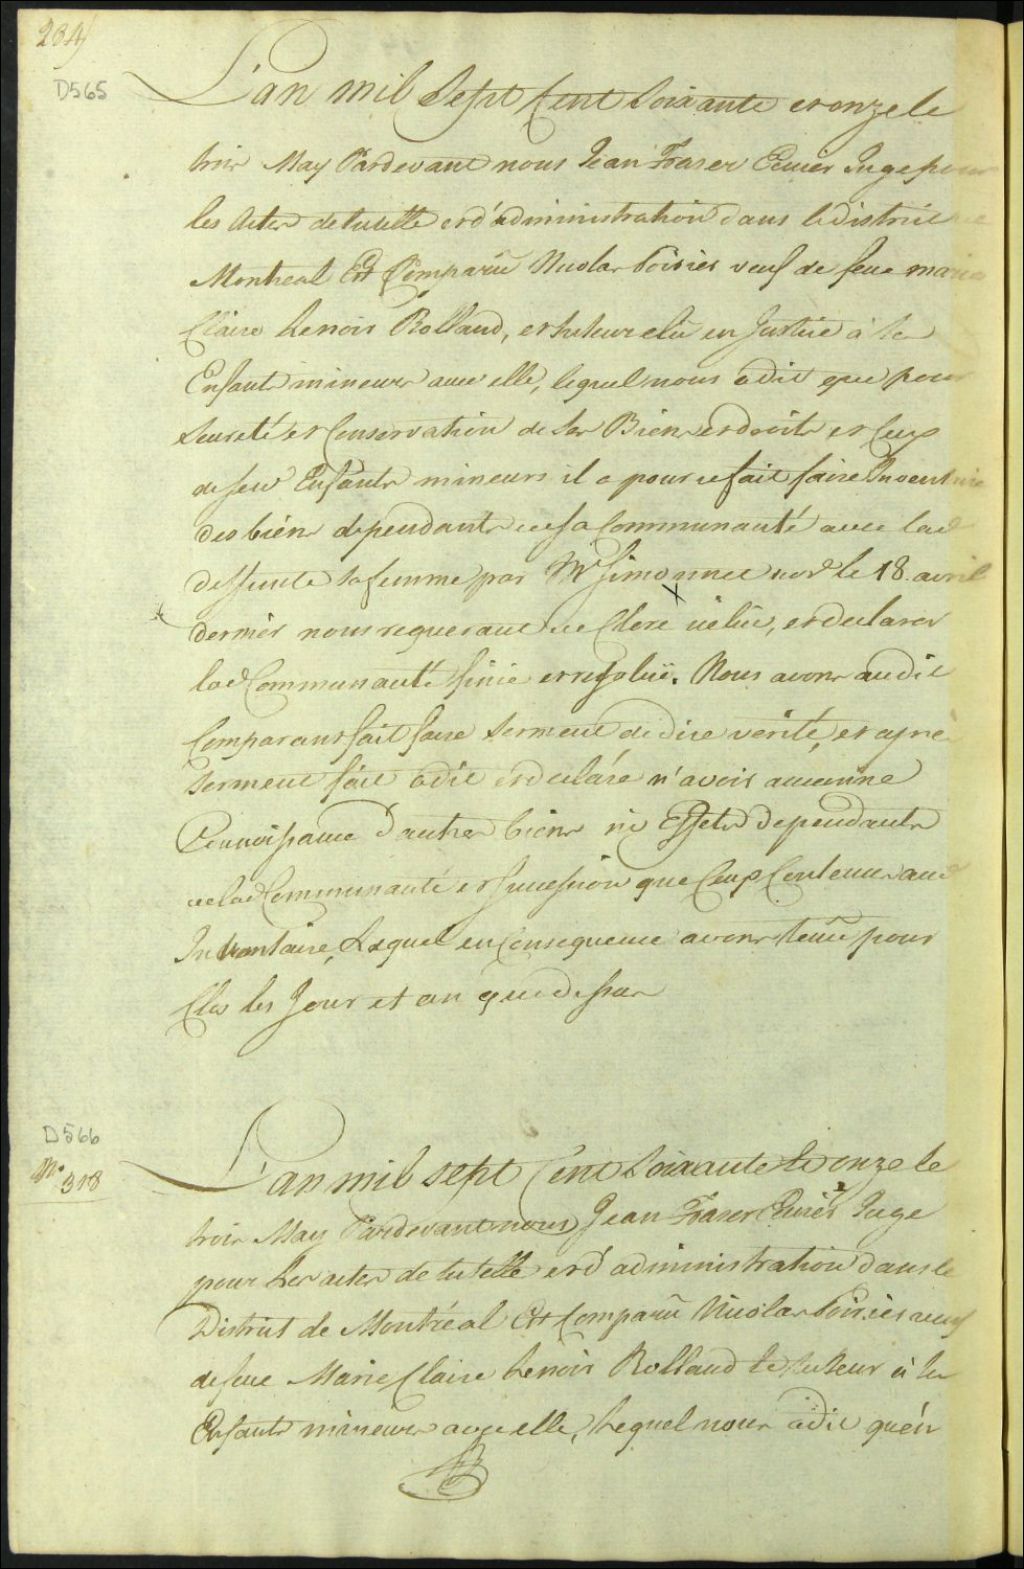 234)
D565
L'an mil Sept Cent Soixante et onze le
trois May Pardevant nous Jean Fraser Ecuier Juge pour
les Actes de tutelle et d'administration dans le District de
Montreal Est Comparû Nicolas Poirier veuf de feue marie
Claire Lenoir Rolland, et tuteur elû en Justice à Ses
Enfants mineurs avec elle, lequel nous a dit que pour
Seureté et Conservation de Ses Biens et droits et Ceux
de Sesd Enfants mineurs il a pour ce fait faire Inventaire
des biens dependants de sa Communauté avec lad
deffunte Sa femme par Mr Simonnet nore le 18. avril
dernier nous requerant de Clore icelui, et declarer
lad Communauté finie et resolüe. Nous avons audit
Comparant fait faire Serment de dire verité, et après
Serment fait a dit et declaré n'avoir aucunne
Connoissance d'autres biens ni Effets dependants
de lad Communauté et Succession que Ceux Contenus aud
Inventaire, Lequel en Consequence avons tenû pour
Clos les Jour et an que dessus
D566
No. 318
L'an mil sept Cent Soixante et onze le
trois May Pardevant nous Jean Fraser Ecuier Juge
pour Les actes de tutelle et d'administration dans le
District de Montréal Est Comparu Nicolas Poirier veuf
de feue Marie Claire Lenoir Rolland et tuteur à Ses
Enfants mineurs avec elle, Lequel nous a dit qu'en